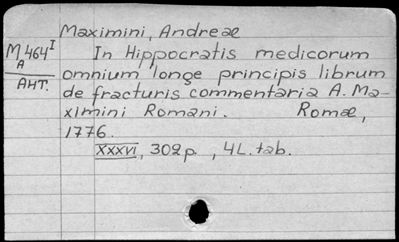 Maximini, Andreae
M 464 I
A
АНТ.
In Hippocratis medicorum
omnium longe principis librum
de fracturis commentaria A. Ma-
ximini Romani. Romae,
1776.
XXXVI, 302 p., 4 L. tab.